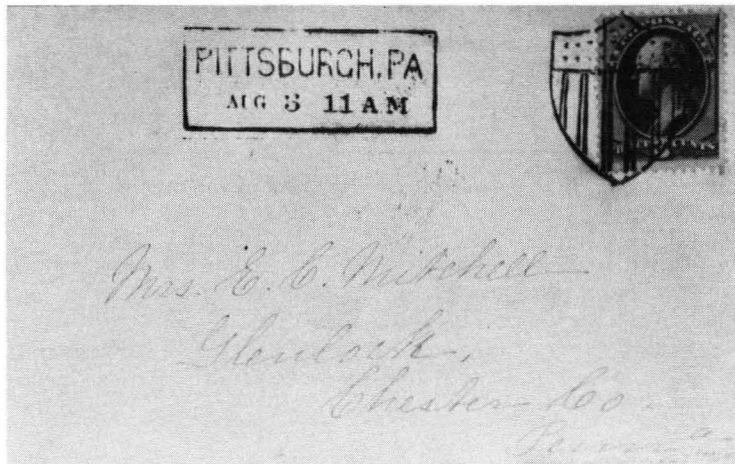 PITTSBURGH, PA
AUG 3 11 AM
Mrs. E. C. Mitchell
Glenlock,
Chester Co.